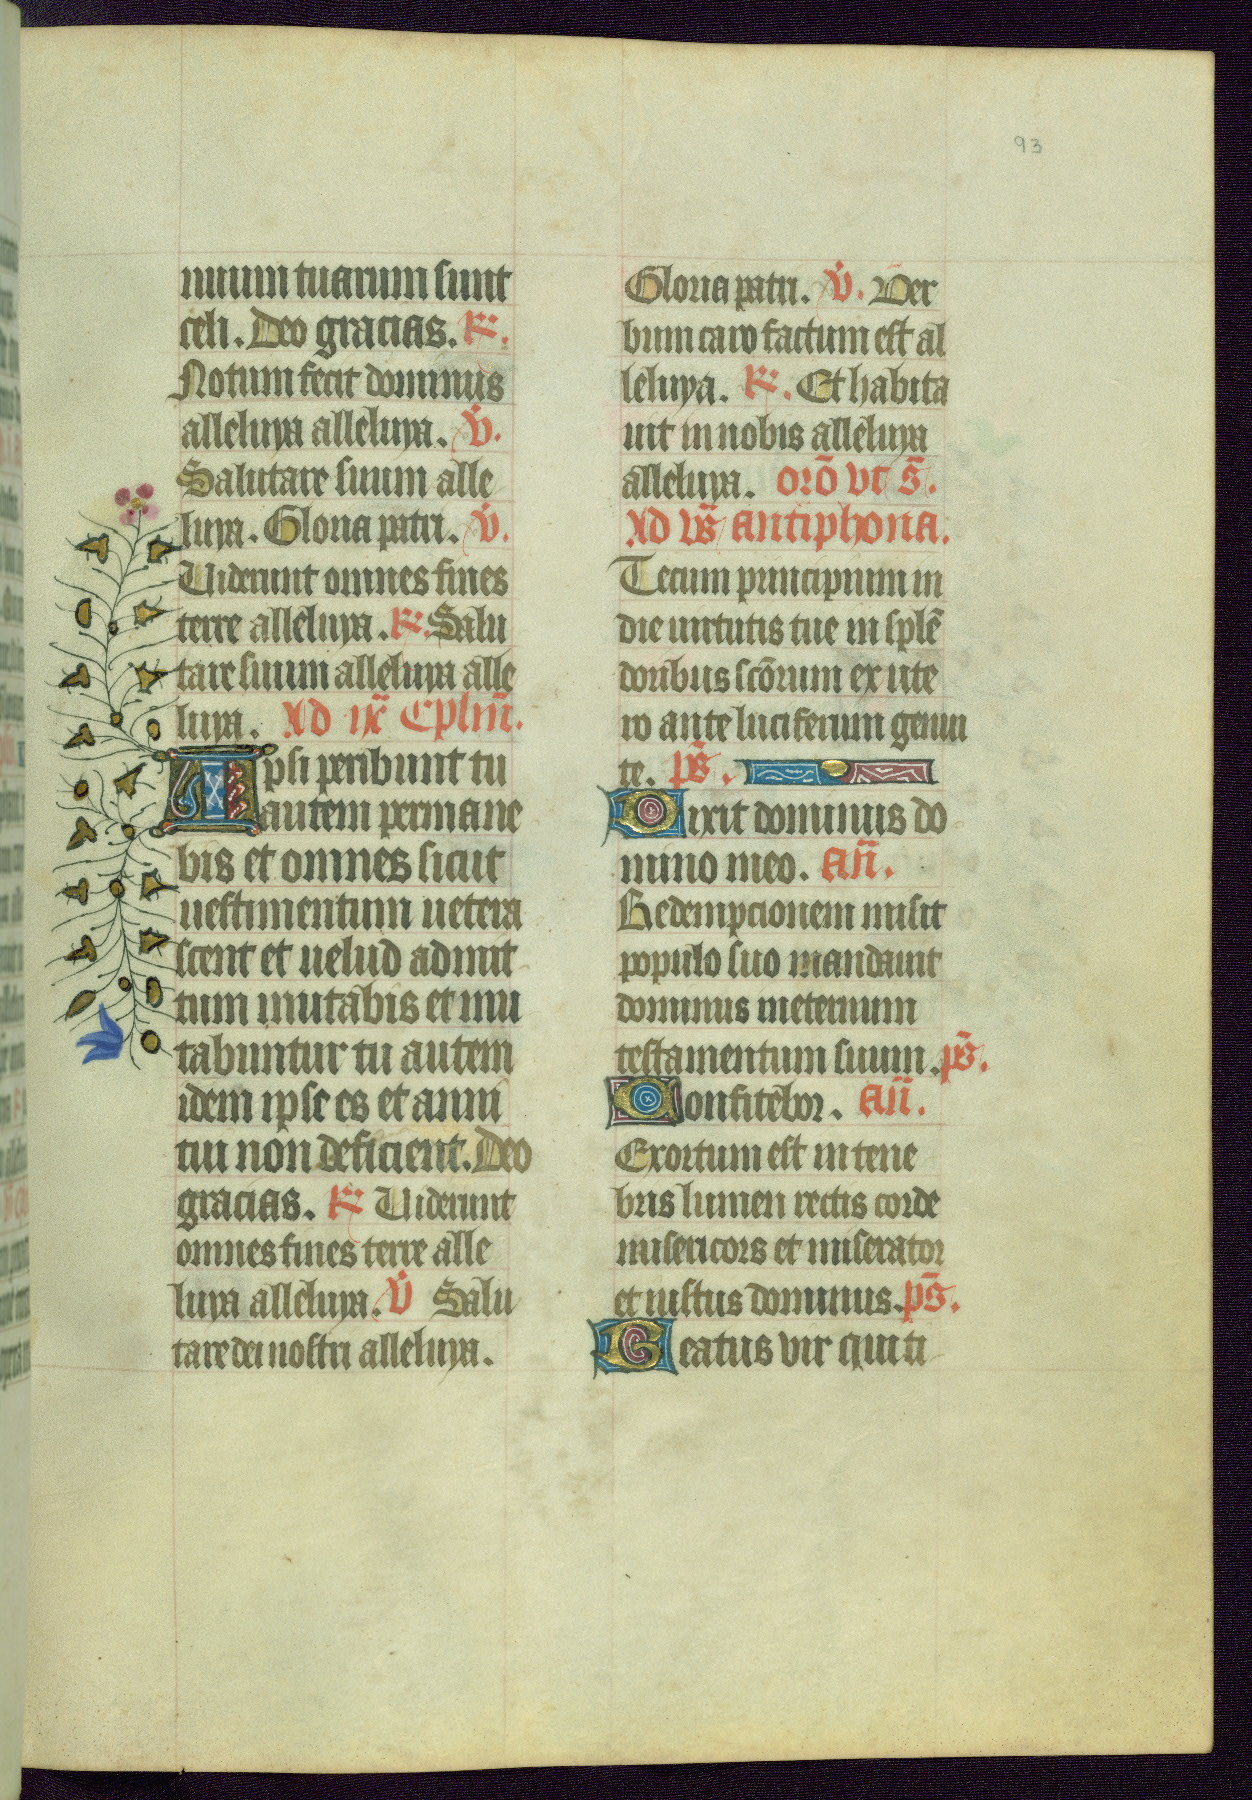 93
nuum tuarum sunt
celi. Deo gracias. R.
Notum fecit dominus
alleluya alleluya. V.
Salutare suum alle
luya. Gloria patri. V.
Uiderunt omnes fines
terre alleluya. R. Salu
tare suum alleluya alle
luya. Ad ix Cplm̄.
Ipsi peribunt tu
autem permane
bis et omnes sicut
uestimentum uetera
scent et uelud admit
tum mutabis et mu
tabuntur tu autem
idem ipse es et anni
tui non deficient. Deo
gracias. R Uiderunt
omnes fines terre alle
luya alleluya. V Salu
tare dei nostri alleluya.
Gloria patri. V. Ver
bum caro factum est al
leluya. R. Et habita
uit in nobis alleluya
alleluya. orō vt s̄.
Ad vs̄ antiphona.
Tecum principium in
die uirtutis tue in splē
doribus scōrum ex ute
ro ante luciferum genui
te. ps̄.
Dixit dominus do
mino meo. an̄.
Redempcionem misit
populo suo mandauit
dominus in eternum
testamentum suum. ps̄.
Confitebor. an̄.
Exortum est in tene
bris lumen rectis corde
misericors et miserator
et iustus dominus. ps̄.
Beatus vir qui ti